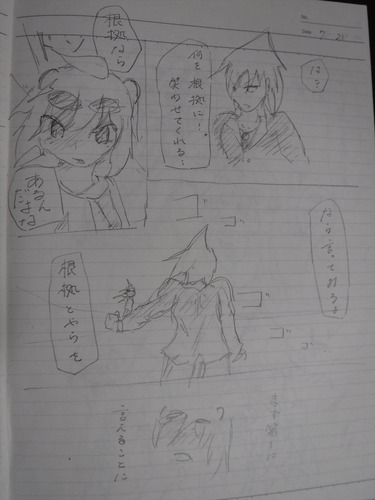 No.
Date 7・21
は?
何を根拠に!
笑わせてくれる!
根拠なら
ドン
あるん
だよな
なら言ってみろよ
ゴ
ゴ
ゴ
ゴ
ゴ
根拠とやらを
まず第一に
言えることに